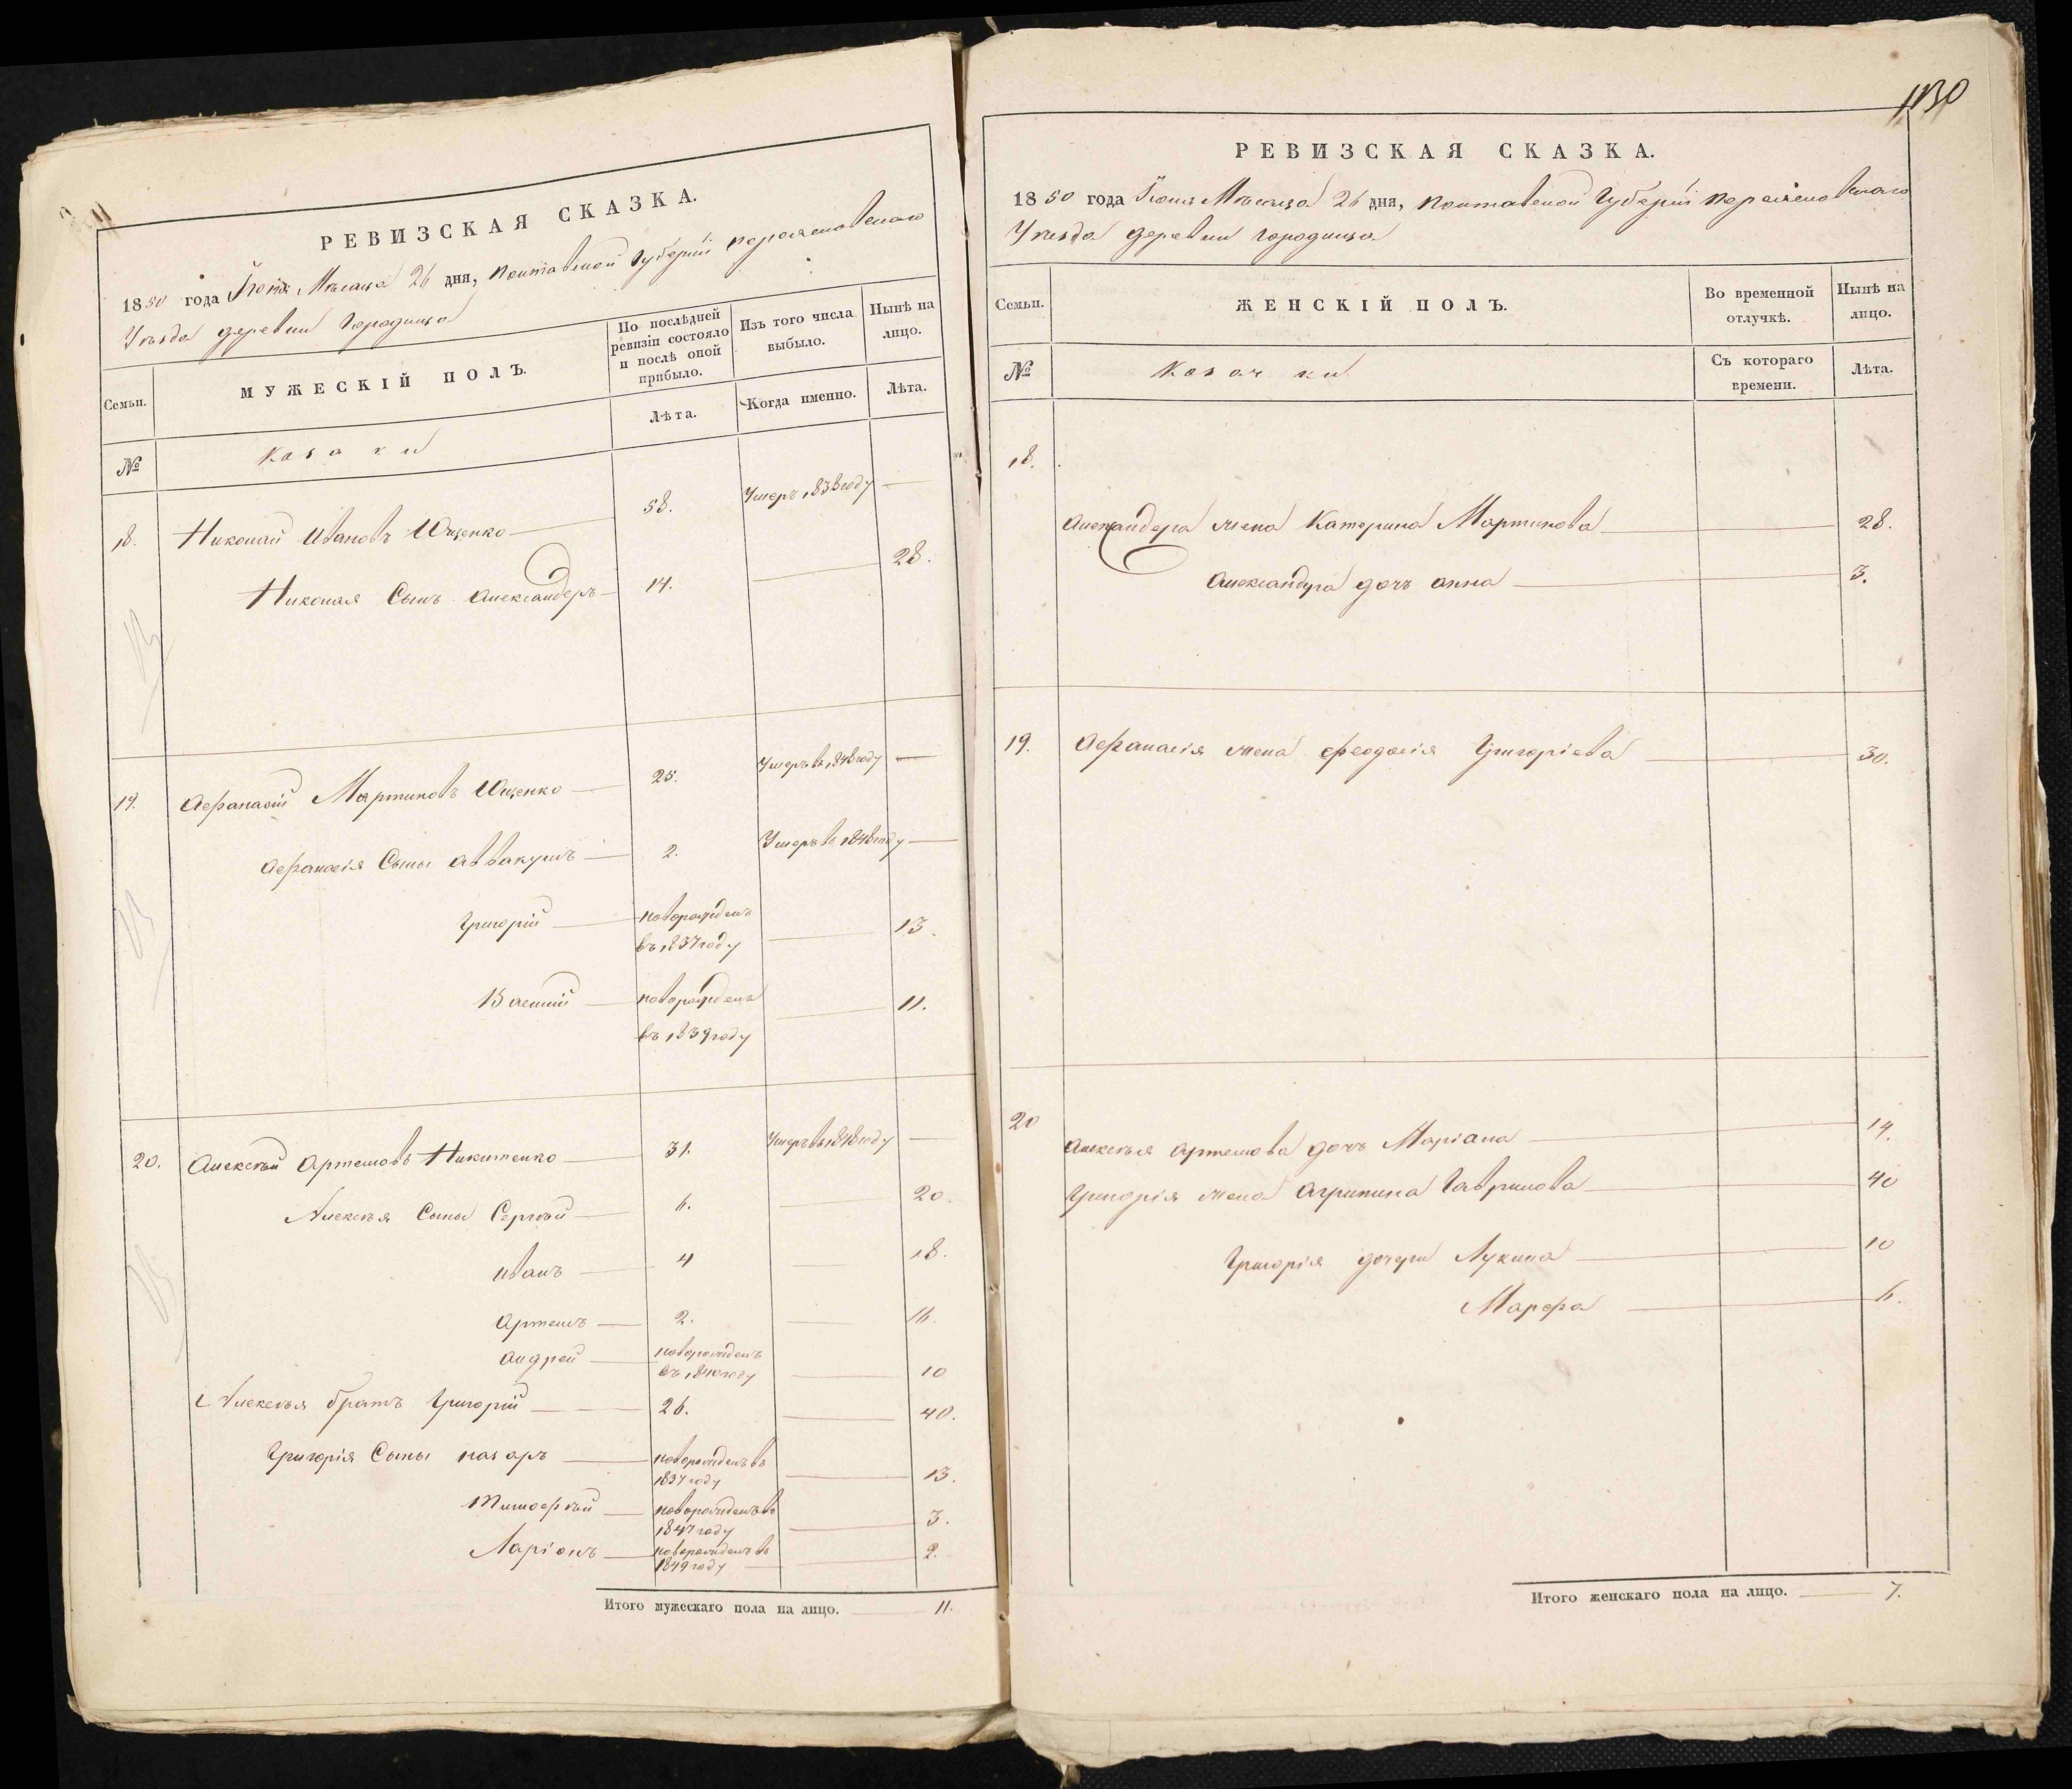 РЕВИЗСКАЯ СКАЗКА.
1850 года Іюня Мѣсяца 26 дня, Полтавской Губерніи Переяславскаго
Уѣзда деревни Городища
Семьи.
МУЖЕСКІЙ ПОЛЪ.
По послѣдней ревизіи состояло и послѣ оной прибыло.
Изъ того числа выбыло.
Нынѣ на лицо.
№
козаки
Лѣта.
Когда именно.
Лѣта.
18. Николай Ивановъ Ищенко 58. Умеръ 1838 году —
Николая Сынъ Александеръ 14. — 28.
19. Афанасій Мартиновъ Ищенко 25. Умеръ въ 1848 году —
Афанасія Сыны Аввакумъ 2. Умеръ въ 1848 году —
Григорій новорожденъ въ 1837 году — 13.
Василій новорожденъ въ 1839 году — 11.
20. Алексѣй Артемовъ Никитенко 31. Умеръ въ 1848 году —
Алексѣя Сыны Сергѣй 6. — 20.
Иванъ 4 — 18.
Артемъ 2. — 16.
Андрей новорожденъ въ 1840 году — 10
Алексѣя братъ Григорій 26. — 40.
Григорія Сыны Назаръ новорожденъ въ 1837 году — 13.
Тимофѣй новорожденъ въ 1847 году — 3.
Ларіонъ новорожденъ въ 1849 году — 2.
Итого мужескаго пола на лицо. — 11.
1130
РЕВИЗСКАЯ СКАЗКА.
1850 года Іюня Мѣсяца 26 дня, Полтавской Губерніи Переяславскаго
Уѣзда деревни Городища
Семьи.
ЖЕНСКІЙ ПОЛЪ.
Во временной отлучкѣ.
Нынѣ на лицо.
№
Козачки
Съ котораго времени.
Лѣта.
18.
Александера жена Катерина Мартинова — 28.
Александра дочь Анна — 3.
19. Афанасія жена Феодосія Григоріева — 30.
20
Алексѣя Артемова дочь Маріана — 14.
Григорія жена Агрипина Гаврилова — 40
Григорія дочери Лукина — 10
Марфа — 6.
Итого женскаго пола на лицо. — 7.